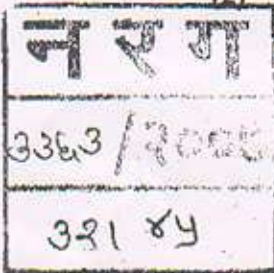 न र ग
३३६३ /
३२१ ४५